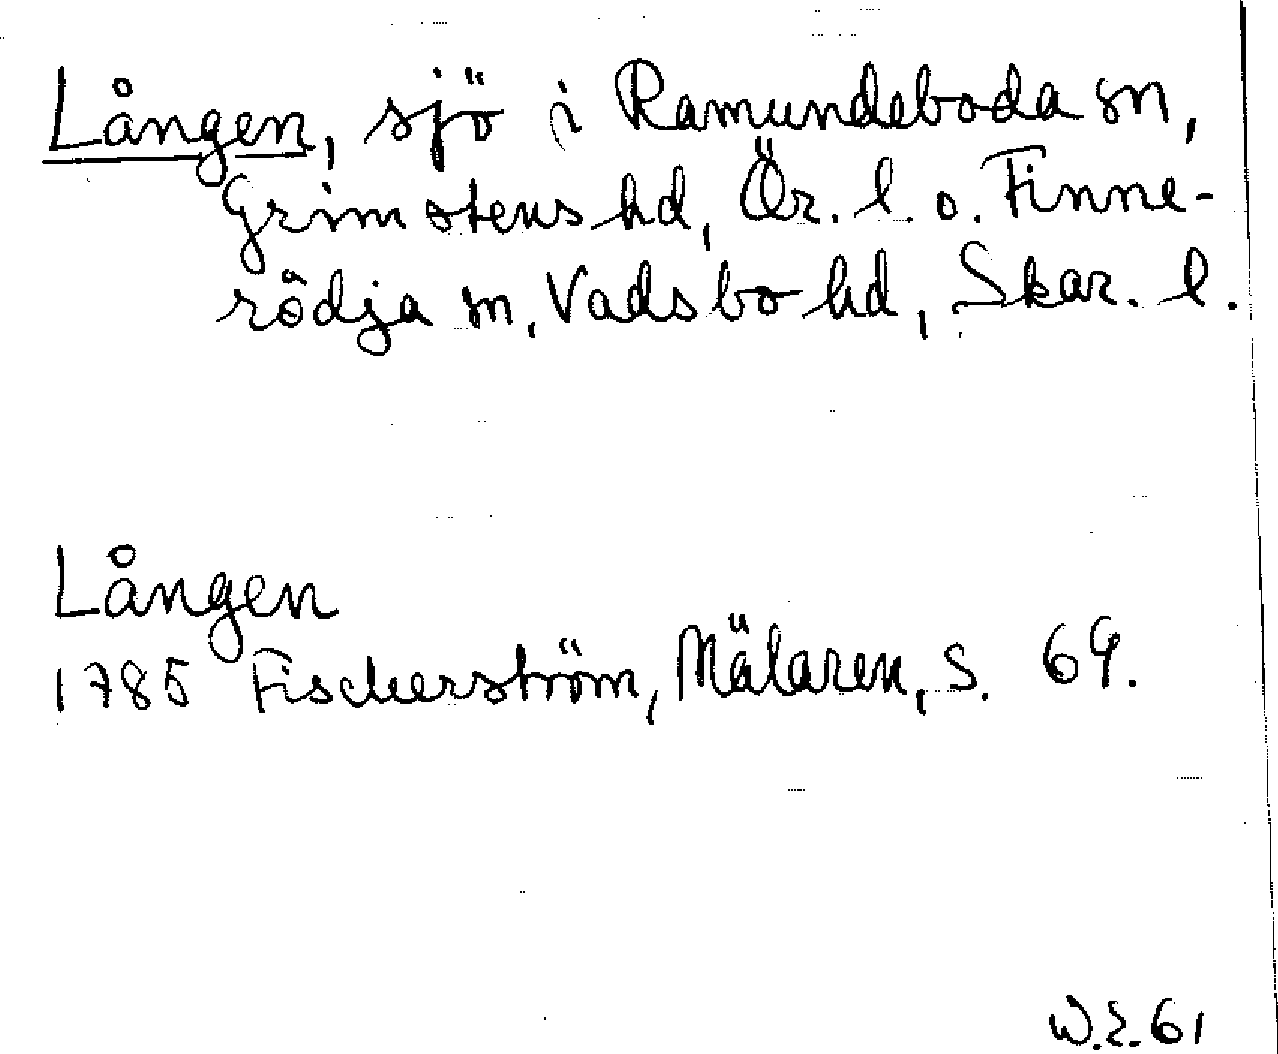 Lången, sjö i Ramundeboda sn,
Grimstens hd, Ör. l. o. Finne-
rödja sn, Vadsbo hd, Skar. l.
Lången
1785 Fischerström, Mälaren, S. 69.
W.E. 61